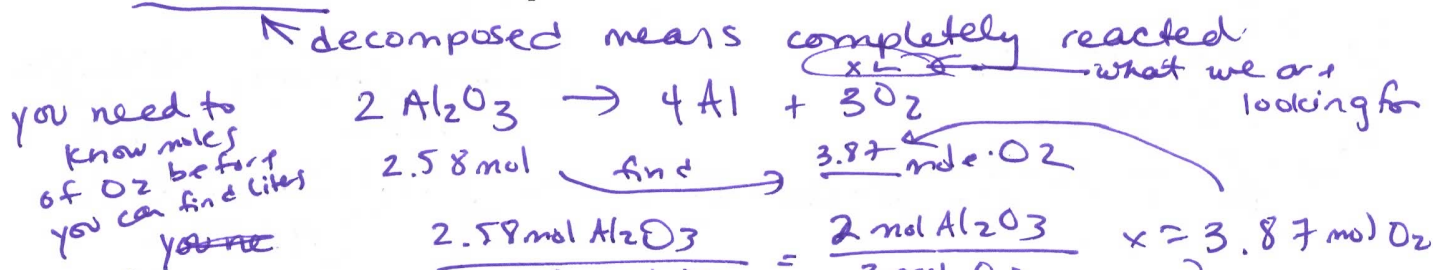 decomposed means completely reacted
x L what we are looking for
2 Al2O3 → 4 Al + 3O2
you need to know moles of O2 before you can find liters
2.58 mol find 3.87 mole O2
2.58 mol Al2O3 = 2 mol Al2O3 x = 3.87 mol O2